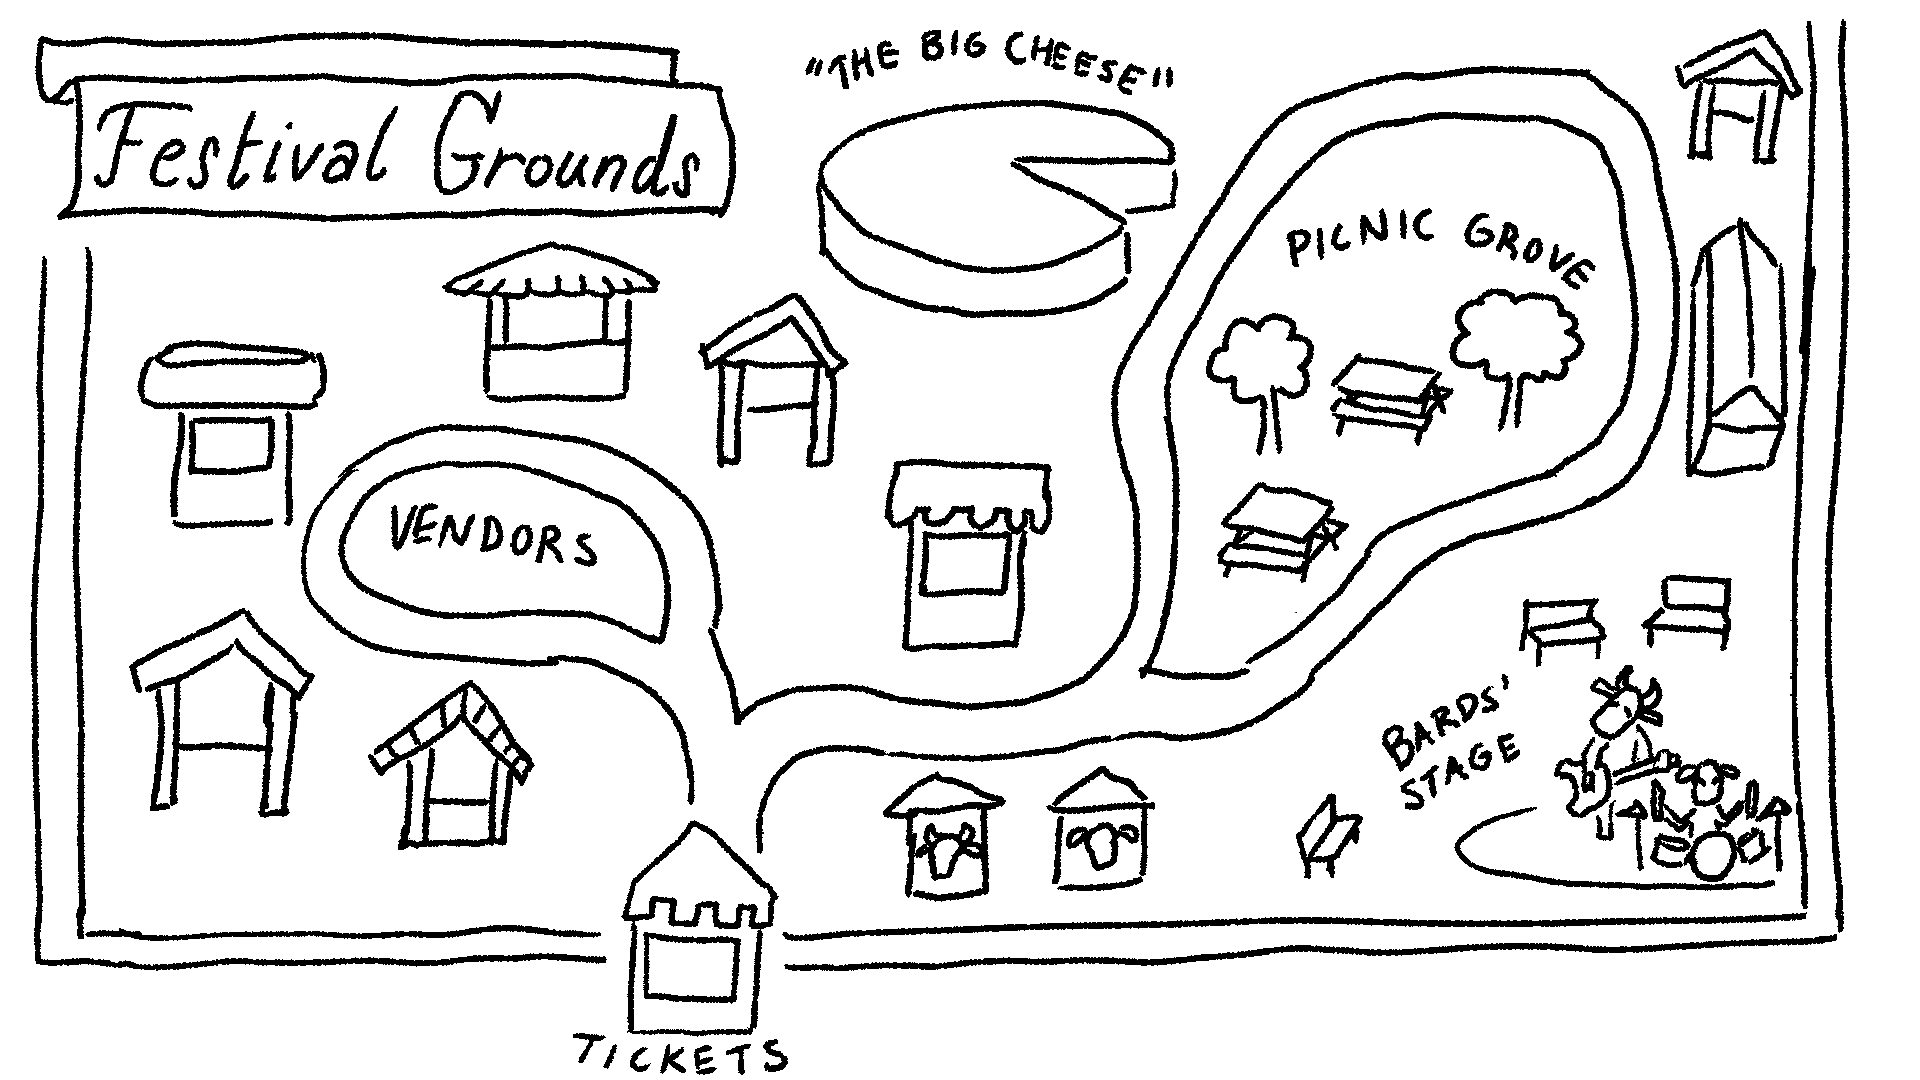 Festival Grounds
"THE BIG CHEESE"
PICNIC GROVE
VENDORS
BARDS'
STAGE
TICKETS